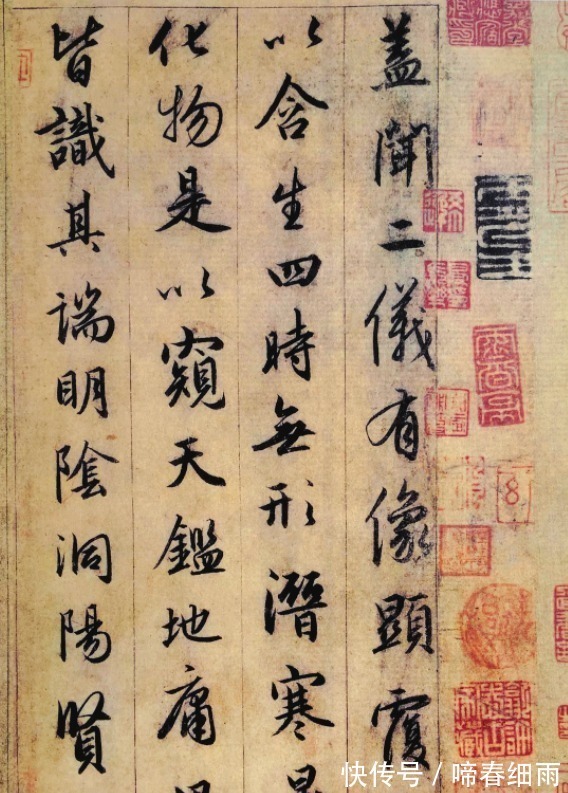 盖聞二儀有像顯覆
以含生四時無形潛寒
化物是以窺天鑑地庸
皆識其端明陰洞陽賢
快传号／啼春细雨